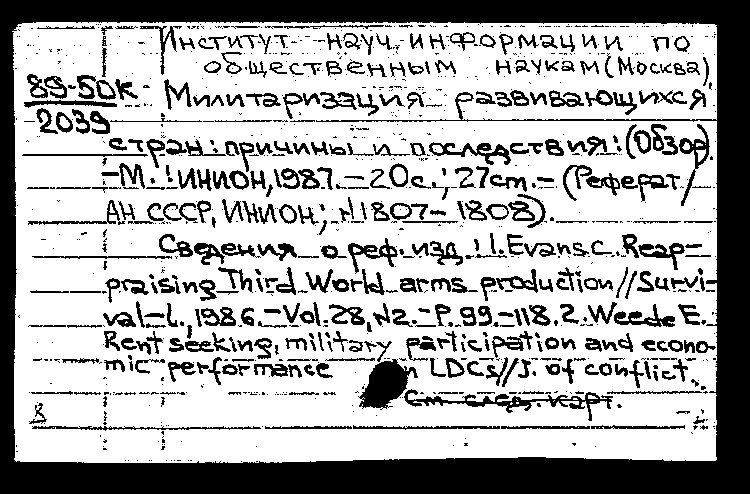 Институт науч. информации по
общественным наукам (Москва)
89-5DK
2039
Милитаризация развивающихся
стран: причины и последствия: (Обзор).
-М.: ИНИОН, 1987. - 20с.; 27cm. - (Реферат/
АН СССР, ИНИОН; N1807-1808).
Сведения о реф. изд.: 1. Evans C. Reap-
praising Third World arms production // Survi-
val - L., 1986. - Vol. 28, N2. - P. 99-118. 2. Weede E.
Rent seeking, military participation and econo-
mic performance n LDCs // J. of conflict.
См. след. карт.